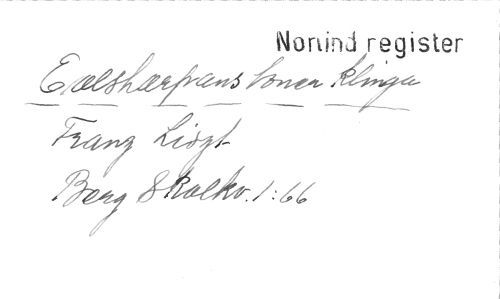 Norlind register
Eolsharpans toner klinga
Franz Liszt
Berg Skolkv. 1:66